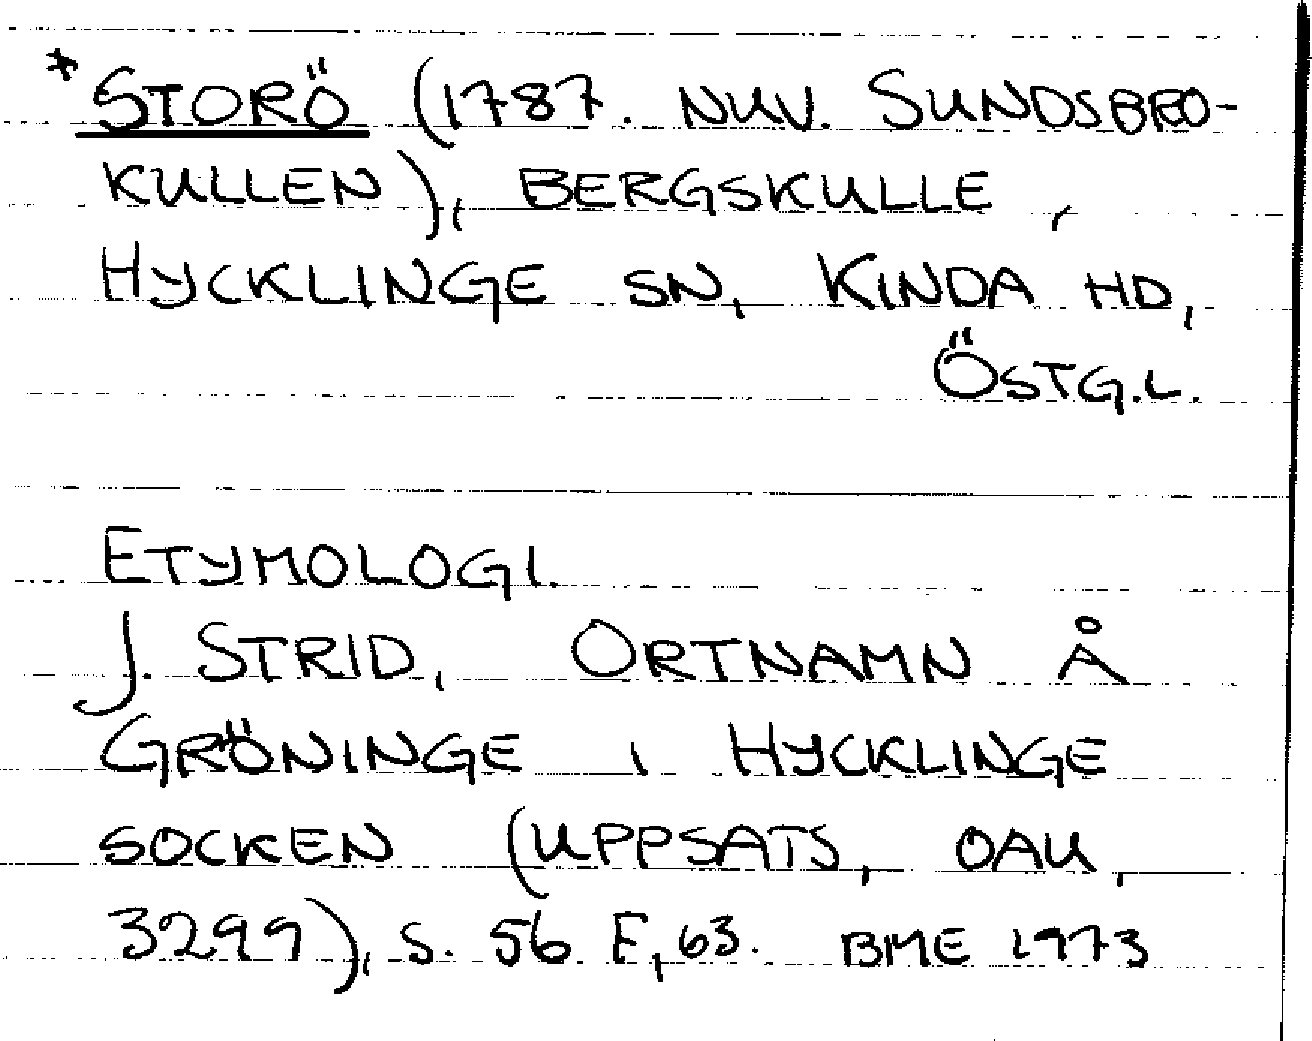 *STORÖ (1787. NUV. SUNDSBRO-
KULLEN), BERGSKULLE,
HYCKLINGE SN, KINDA HD,
ÖSTG.L.
ETYMOLOGI.
J. STRID, ORTNAMN Å
GRÖNINGE I HYCKLINGE
SOCKEN (UPPSATS, OAU,
3299), S. 56 F, 63. BME 1973